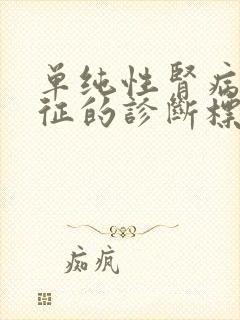 单纯性腎病
征的診断標
痴疯